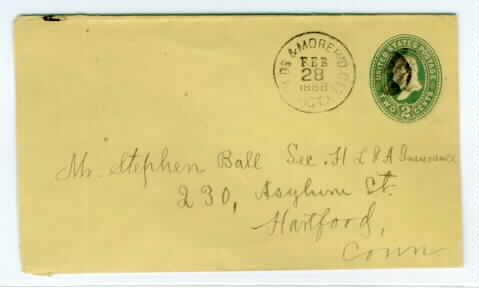 & MORE
FEB
28
1888
UNITED STATES POSTAGE
TWO 2 CENTS
Mr Stephen Ball Sec. H L & A Insurance
230, Asylum St.
Hartford,
Conn